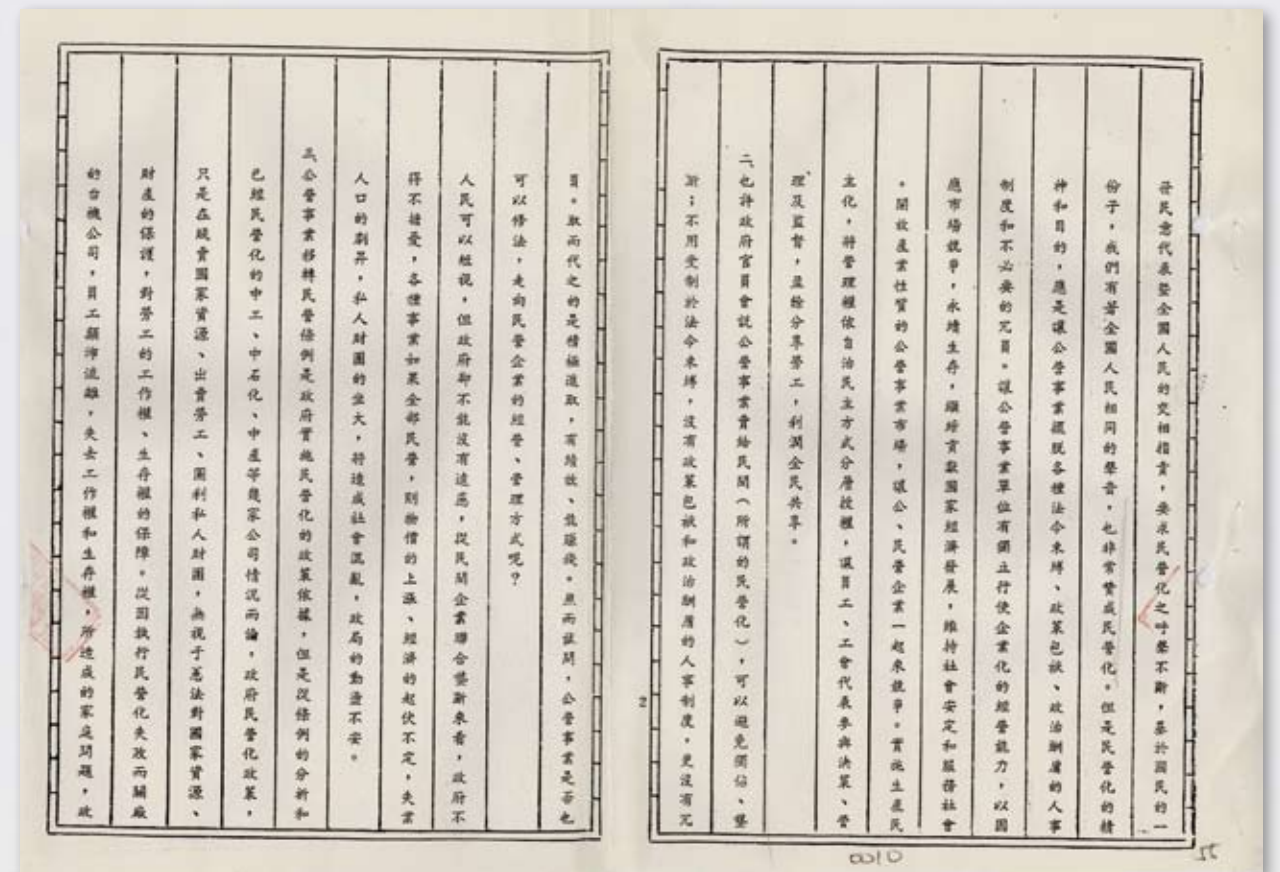 晉民意代表暨全國人民的交相指責，要求民營化之呼聲不斷，基於國民的一
份子，我們有著全國人民相同的聲音，也非常贊成民營化。但是民營化的精
神和目的，應是讓公營事業擺脫各種法令束縛、政策包袱、政治酬庸的人事
制度和不必要的冗員。讓公營事業單位有獨立行使企業化的經營能力，以因
應市場競爭，永續生存，繼續貢獻國家經濟發展，維持社會安定和服務社會
。開放產業性質的公營事業市場，讓公、民營企業一起來競爭。實施生產民
主化，將管理權依自治民主方式分層授權，讓員工、工會代表參與決策、管
理及監督，盈餘分享勞工，利潤全民共享。
二、也許政府官員會說公營事業賣給民間（所謂的民營化），可以避免獨佔、壟
斷；不用受制於法令束縛，沒有政策包袱和政治酬庸的人事制度，更沒有冗
員。取而代之的是積極進取，有績效、能賺錢。然而試問，公營事業是否也
可以修法，走向民營企業的經營、管理方式呢？
人民可以短視，但政府卻不能沒有遠慮，從民間企業聯合壟斷來看，政府不
得不接受，各種事業如果全部民營，則物價的上漲、經濟的起伏不定，失業
人口的劇昇，私人財團的坐大，將造成社會混亂，政局的動盪不安。
三、公營事業移轉民營條例是政府實施民營化的政策依據，但是從條例的分析和
已經民營化的中工、中石化、中產等幾家公司情況而論，政府民營化政策，
只是在賤賣國家資源、出賣勞工、圖利私人財團，無視于憲法對國家資源、
財產的保護，對勞工的工作權、生存權的保障。從因執行民營化失政而關廠
的台機公司，員工顛沛流離，失去工作權和生存權，所造成的家庭問題，政
2
0100